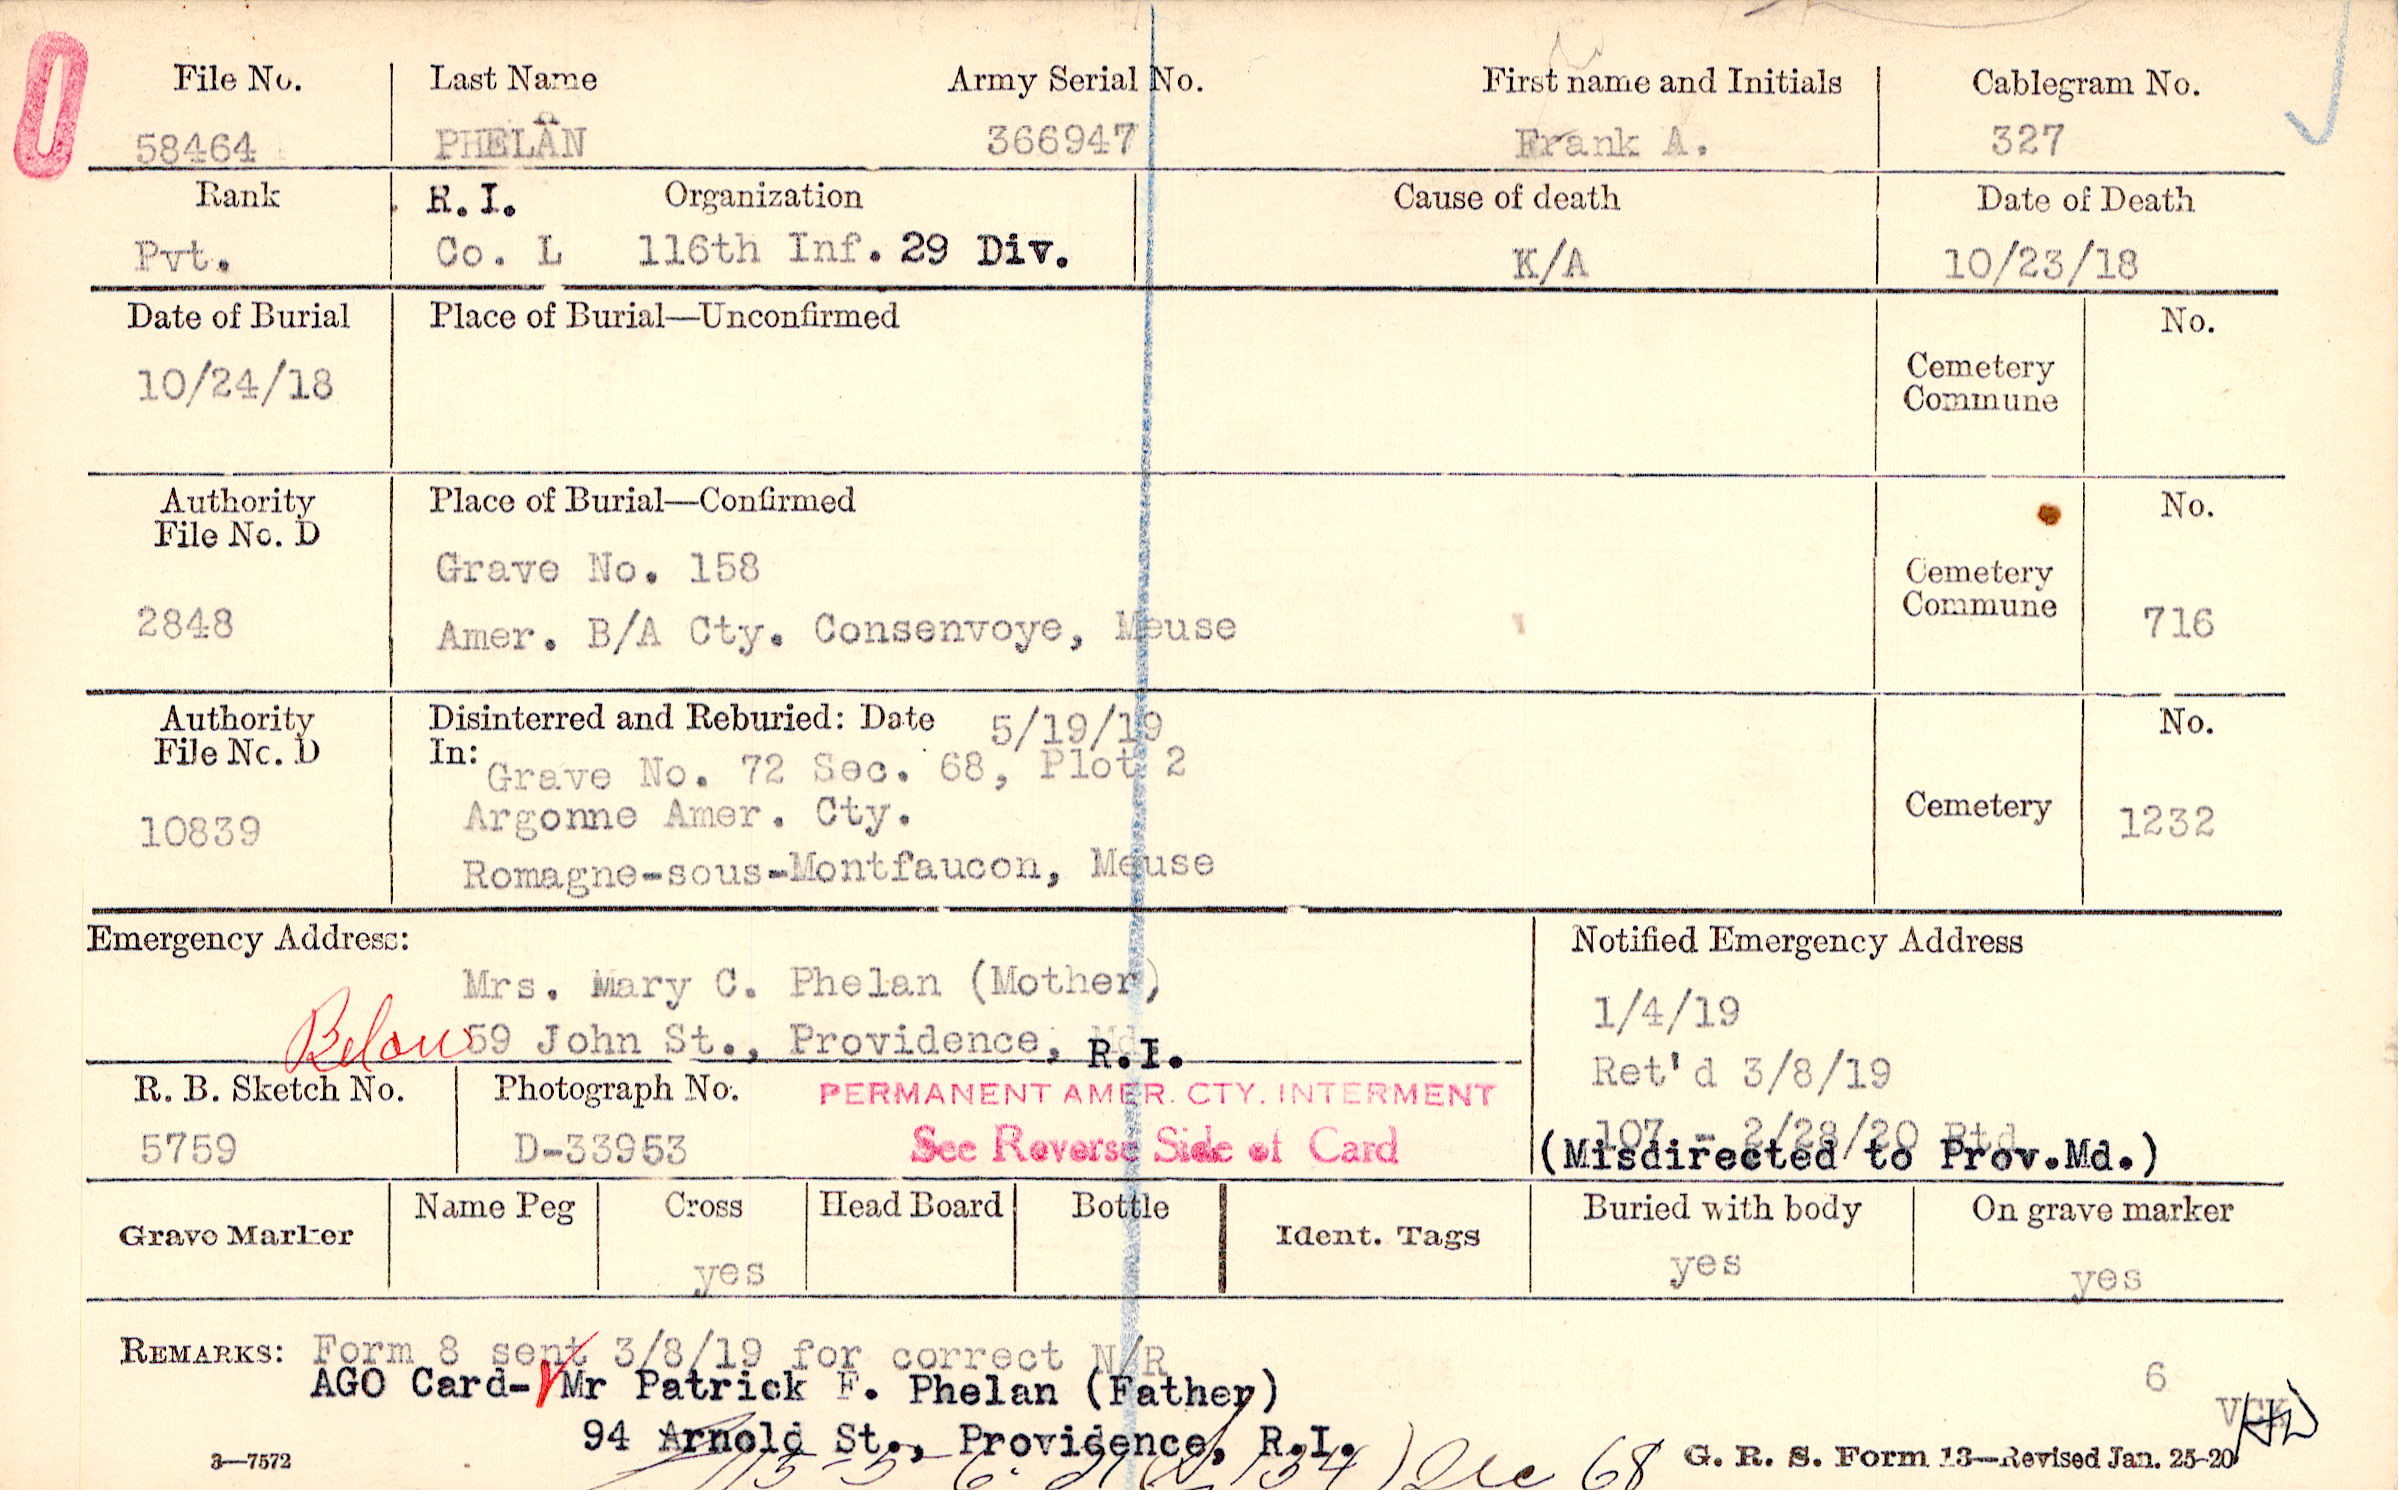 File No. Last Name Army Serial No. First name and Initials Cablegram No.
58464 PHELAN 366947 Frank A. 327
Rank R.I. Organization Cause of death Date of Death
Pvt. Co. L 116th Inf. 29 Div. K/A 10/23/18
Date of Burial Place of Burial—Unconfirmed No.
10/24/18
Cemetery
Commune
Authority Place of Burial—Confirmed No.
File No. D
Grave No. 158
Cemetery
Commune
2848 Amer. B/A Cty. Consenvoye, Meuse 716
Authority Disinterred and Reburied: Date 5/19/19 No.
File No. D In:
Grave No. 72 Sec. 68, Plot 2
Argonne Amer. Cty. Cemetery
10839 1232
Romagne-sous-Montfaucon, Meuse
Emergency Address: Notified Emergency Address
Mrs. Mary C. Phelan (Mother)
1/4/19
Below 59 John St., Providence, Md. R.I.
Ret'd 3/8/19
R. B. Sketch No. Photograph No. PERMANENT AMER. CTY. INTERMENT
107 - 2/28/20 Rtd
5759 D-33953 See Reverse Side of Card (Misdirected to Prov.Md.)
Grave Marker Name Peg Cross Head Board Bottle Ident. Tags Buried with body On grave marker
yes yes yes
REMARKS: Form 8 sent 3/8/19 for correct N/R
AGO Card- Mr Patrick F. Phelan (Father) 6
94 Arnold St., Providence, R.I.
Sec 68
3—7572 G. R. S. Form 13—Revised Jan. 25-20